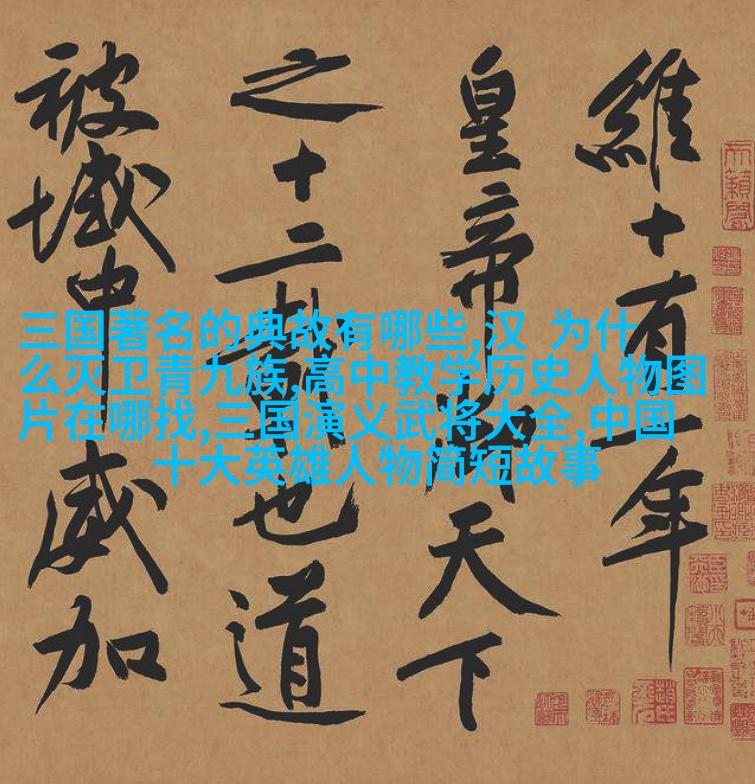 維十有一年
皇帝御天下
之十二載也道
被域中威加
三国著名的典故有哪些,汉 为什
么灭卫青九族,高中教学历史人物图
片在哪找,三国演义武将大全,中国
十大英雄人物简短故事